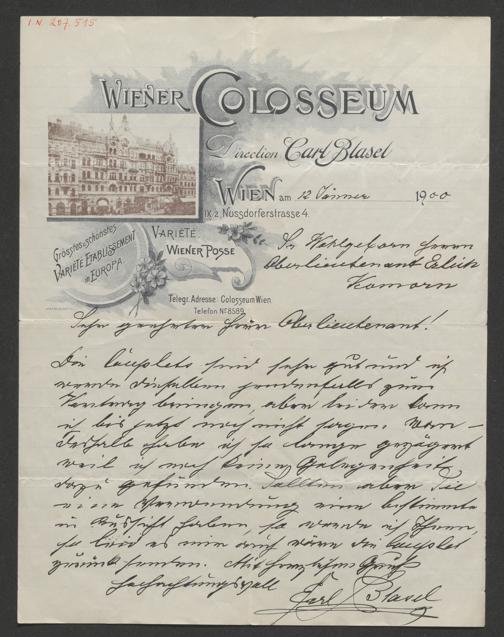 I.N. 207.515
WIENER COLOSSEUM
Direction Carl Blasel
WIEN am 12 Jänner 1900
IX/2, Nussdorferstrasse 4.
Grösstes u. schönstes
VARIÉTÉ ETABLISSEMENT
in EUROPA.
VARIÉTÉ
WIENER POSSE
Telegr. Adresse: Colosseum Wien.
Telefon Nº 8589.
Sr Wohlgeborn Herrn
Oberlieutenant
Komorn
Sehr geehrter Herr Oberlieutenant!
Die Couplets sind sehr gut und ich
werde dieselben jedenfalls zum
Vortrag bringen, aber leider kann
ich bis jetzt noch nicht sagen. Wann –
Deshalb habe ich so lange gezögert
weil ich noch keine Gelegenheit
dazu gefunden. Sollten aber Sie
eine Verwendung eine bestimmte
in Aussicht haben, so werde ich Ihnen
so leid es mir auch wäre die Couplet
zurück senden. Mit herzlichem Gruß
Hochachtungsvoll
Karl Blasel